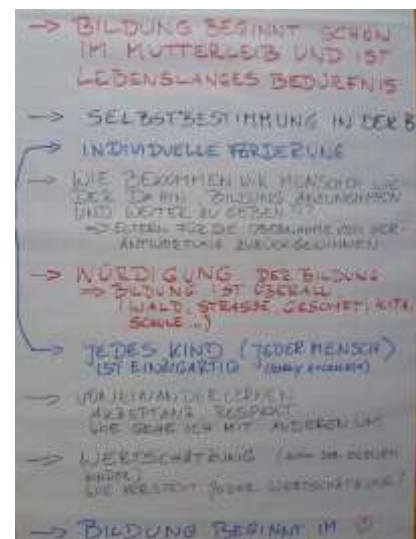 -> BILDUNG BEGINNT SCHON
IM MUTTERLEIB UND IST
LEBENSLANGES BEDÜRFNIS
-> SELBSTBESTIMMUNG IN DER B
INDIVIDUELLE FÖRDERUNG
-> WIE BEKOMMEN WIR MENSCHEN WIE
DER DAHIN, BILDUNG ANZUNEHMEN
UND WEITER ZU GEBEN??
=> ELTERN FÜR DIE ÜBERNAHME VON VER-
ANTWORTUNG ZURÜCKGEWINNEN
-> WÜRDIGUNG DER BILDUNG
=> BILDUNG IST ÜBERALL
(WALD, STRASSE, GESCHÄFT, KITA,
SCHULE...)
-> JEDES KIND (JEDER MENSCH)
IST EINZIGARTIG
-> VONEINANDER LERNEN
AKZEPTANZ, RESPEKT
WIE GEHE ICH MIT ANDEREN UM
-> WERTSCHÄTZUNG DER EIGENEN
KINDER)
WIE VERSTEHT JEDER WERTSCHÄTZUNG?
-> BILDUNG BEGINNT IM